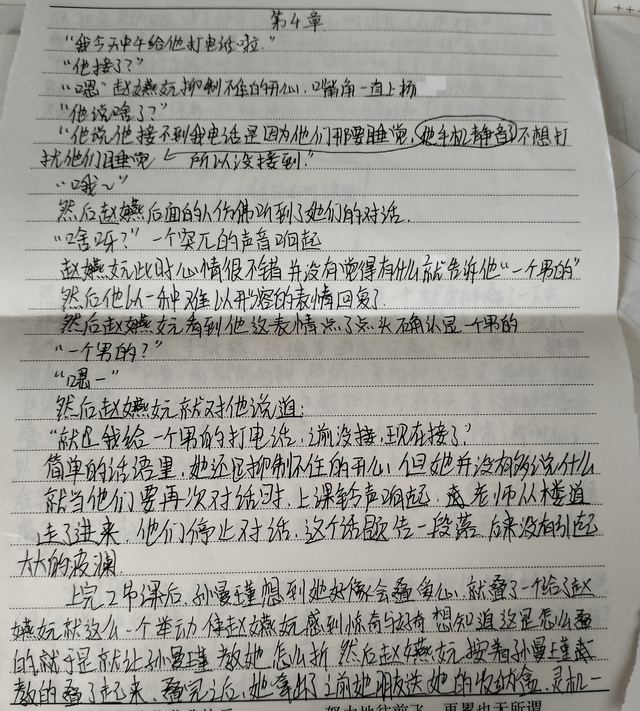 第4章
"我今天中午给他打电话啦."
"他接了?"
"嗯"赵嬿妧抑制不住的开心,嘴角一直上扬
"他说啥了?"
"他说他接不到我电话是因为他们那要睡觉,他手机静音了不想打
扰他们睡觉 所以没接到."
"哦~"
然后赵嬿后面的人仿佛听到了她们的对话.
"啥呀?"一个突兀的声音响起
赵嬿妧此时心情很不错并没有觉得有什么就告诉他"一个男的"
然后他以一种难以形容的表情回复了
然后赵嬿妧看到他这表情点了点头确认是一个男的
"一个男的?"
"嗯一"
然后赵嬿妧就对他说道:
"就是我给一个男的打电话,之前没接,现在接了."
简单的话语里,她还是抑制不住的开心,但她并没有多说什么
就当他们要再次对话时,上课铃声响起, 老师从楼道
走了进来,他们停止对话,这个话题告一段落,后来没有引起
大大的波澜
上完2节课后,孙曼瑾想到她好像会叠鱼仙,就叠了一个给了赵
嬿妧就这么一个举动使赵嬿妧感到惊奇与好奇想知道这是怎么叠
的就于是就让孙曼瑾教她怎么折 然后赵嬿妧按着孙曼瑾
教的叠了起来,叠完之后,她拿出了之前她朋友送她的收纳盒,灵机一
努力地往前飞,再累也无所谓